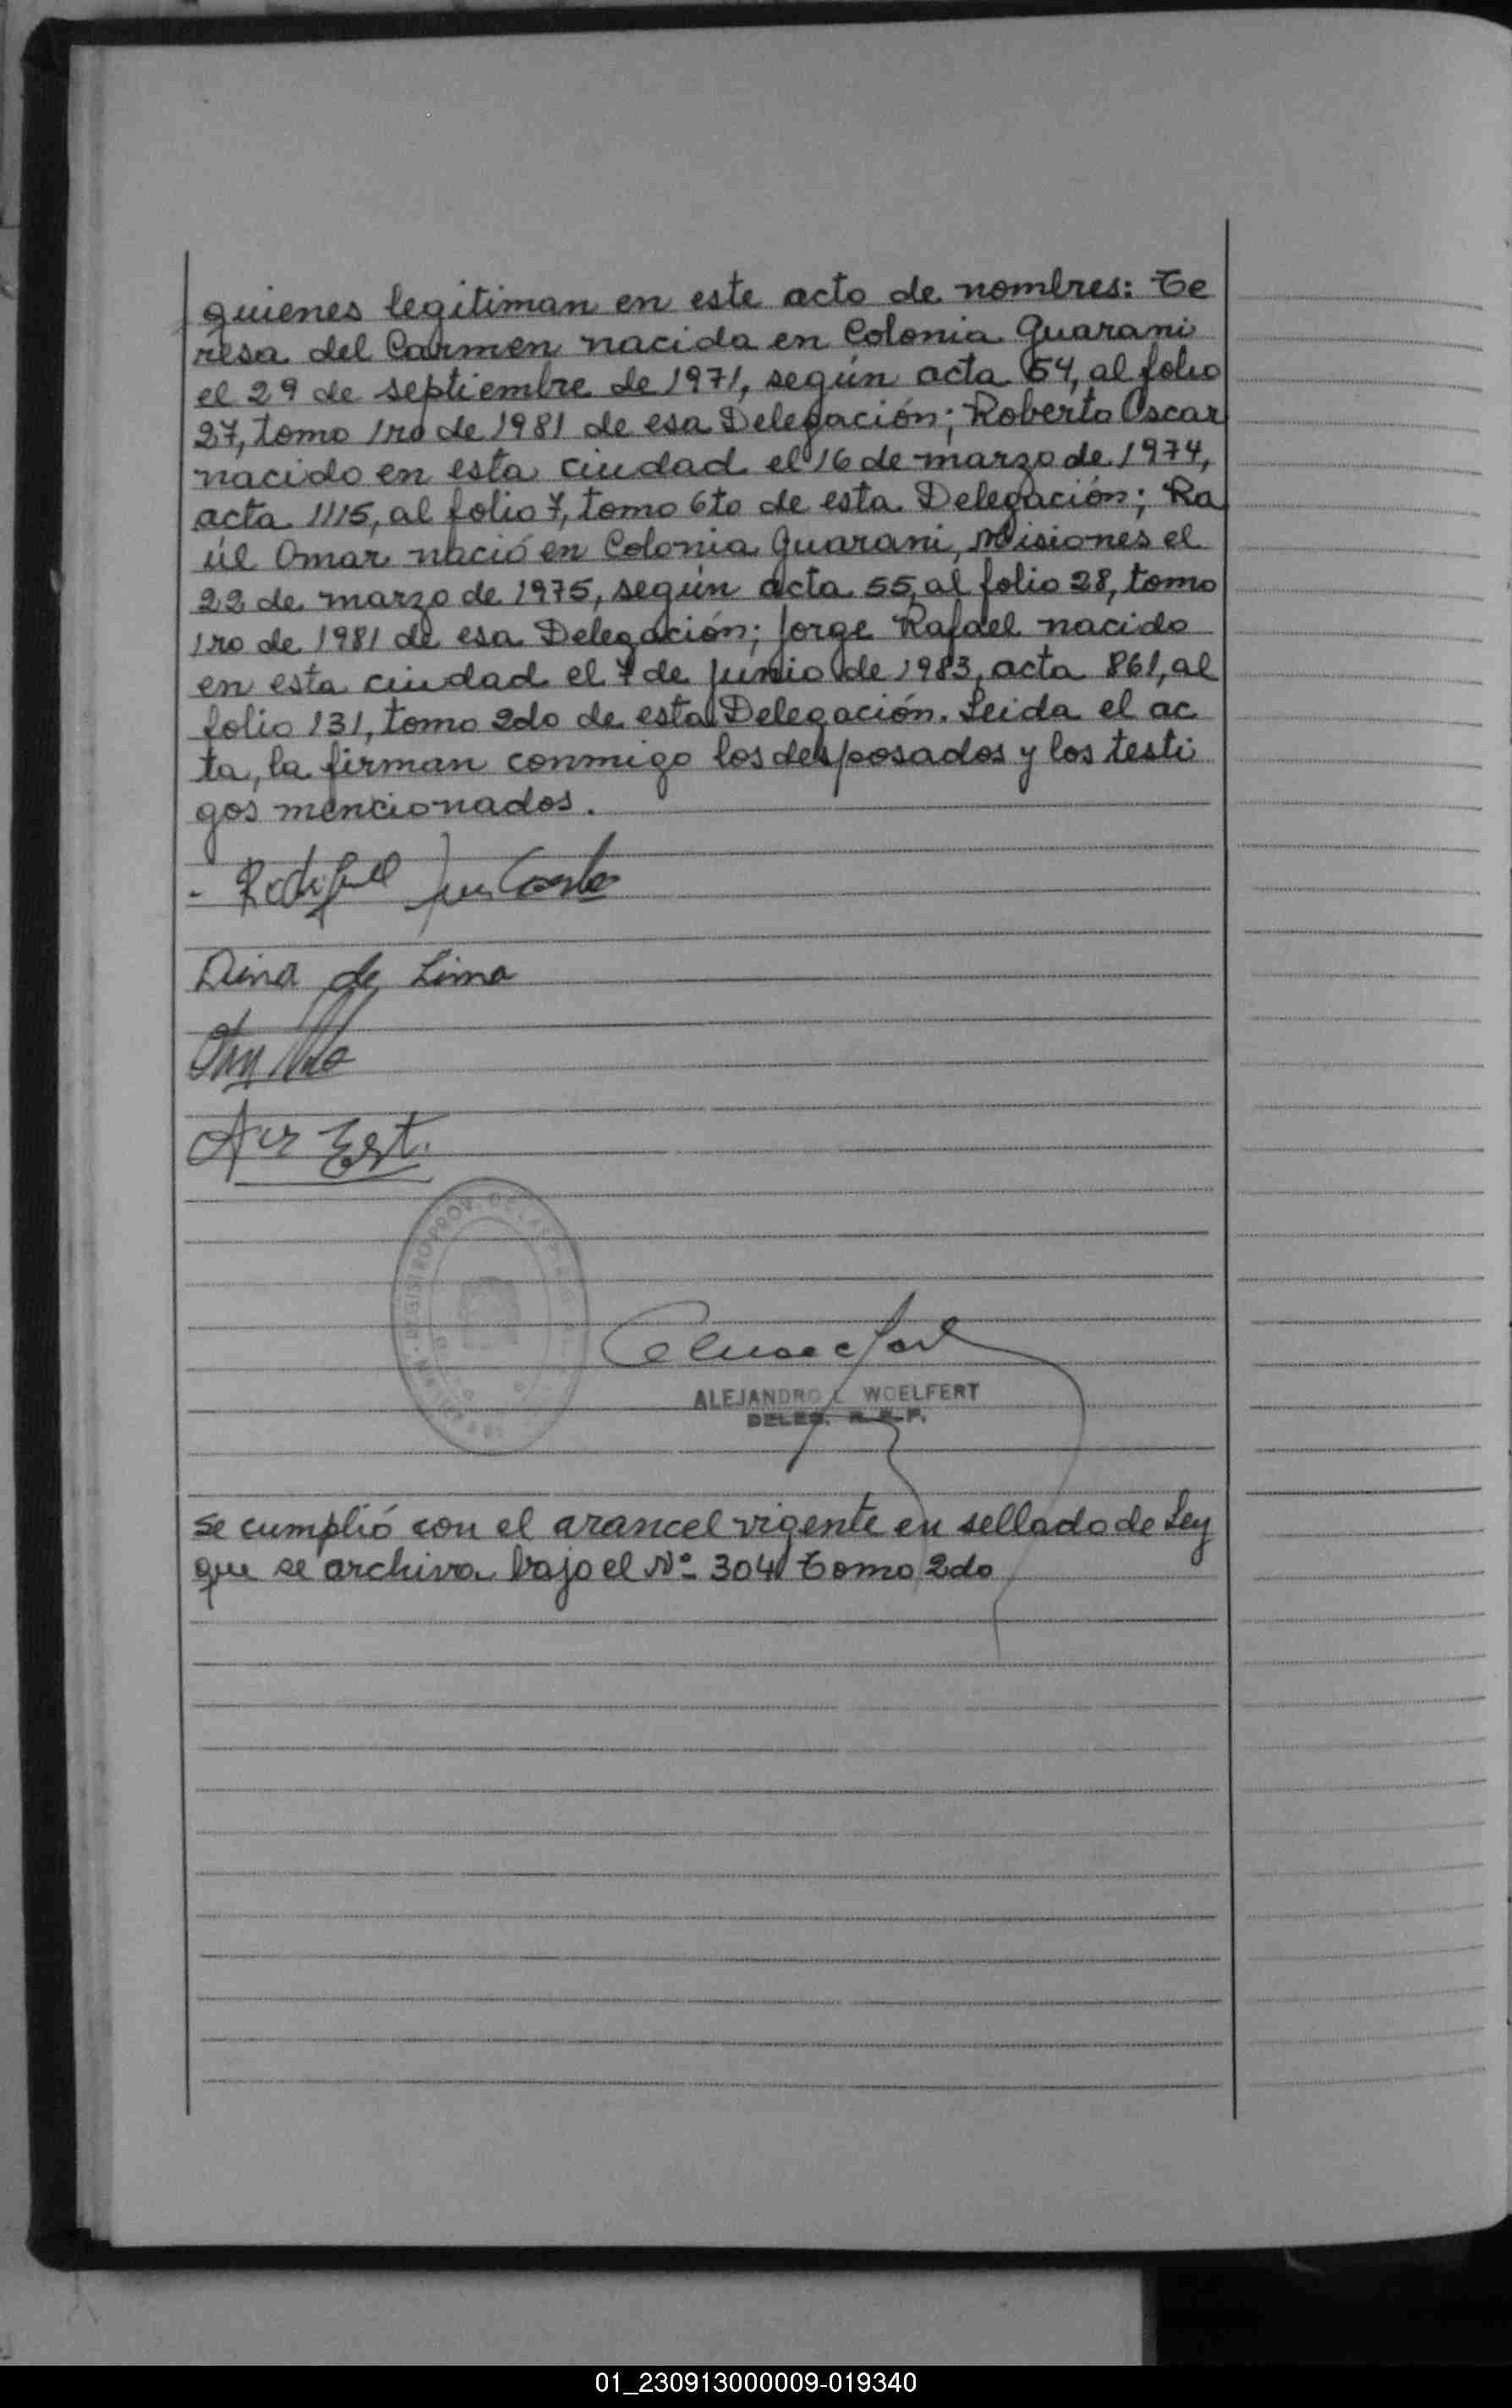 quienes legitiman en este acto de nombres: Te
resa del Carmen nacida en Colonia Guarani
el 29 de septiembre de 1971, según acta 54, al folio
27, tomo 1ro de 1981 de esa Delegación; Roberto Oscar
nacido en esta ciudad el 16 de marzo de 1974,
acta 1115, al folio 7, tomo 6to de esta Delegación; Ra
úl Omar nació en Colonia Guarani, Misiones el
22 de marzo de 1975, según acta 55, al folio 28, tomo
1ro de 1981 de esa Delegación; Jorge Rafael nacido
en esta ciudad el 7 de junio de 1983, acta 861, al
folio 131, tomo 2do de esta Delegación. Leida el ac
ta, la firman conmigo los desposados y los testi
gos mencionados.
Dina de Lima
ALEJANDRO L WOELFERT
DELEG. R. P.
Se cumplió con el arancel vigente en sellado de Ley
que se archiva bajo el Nº 304 Tomo 2do
01_230913000009-019340